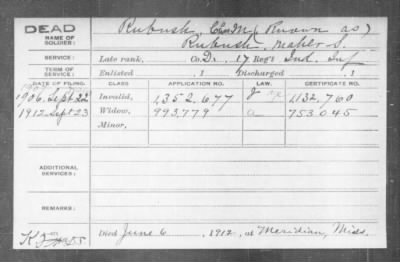 DEAD
NAME OF SOLDIER:
Rubush, Chas M (Known as)
Rubush, S.
SERVICE:
Late rank, Co. D. 17 Reg't Ind. Inf
TERM OF SERVICE:
Enlisted , 1 Discharged , 1
DATE OF FILING. CLASS. APPLICATION NO. LAW. CERTIFICATE NO.
1906. Sept 22 Invalid, 1352.677 1132,760
1912 Sept 23 Widow, 993,779 a 753045
Minor,
ADDITIONAL SERVICES:
REMARKS:
Died June 6, 1912, at Meridian, Miss.